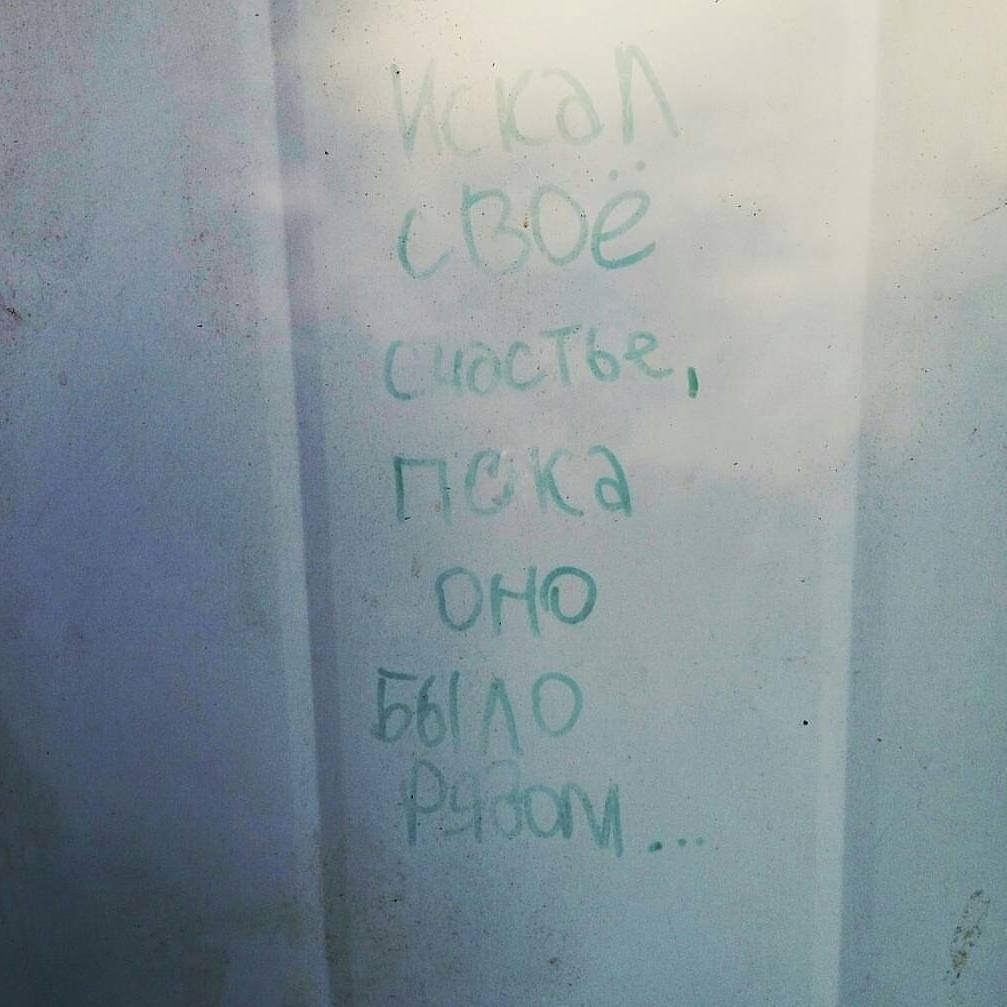 Искал
своё
счастье,
пока
оно
было
рядом...